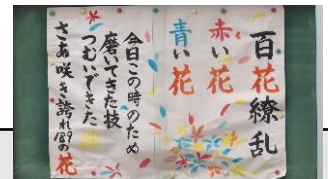 百花繚乱
赤い花
青い花
今日この時のため
磨いてきた技
つむいできた
さあ咲き誇れ189の花